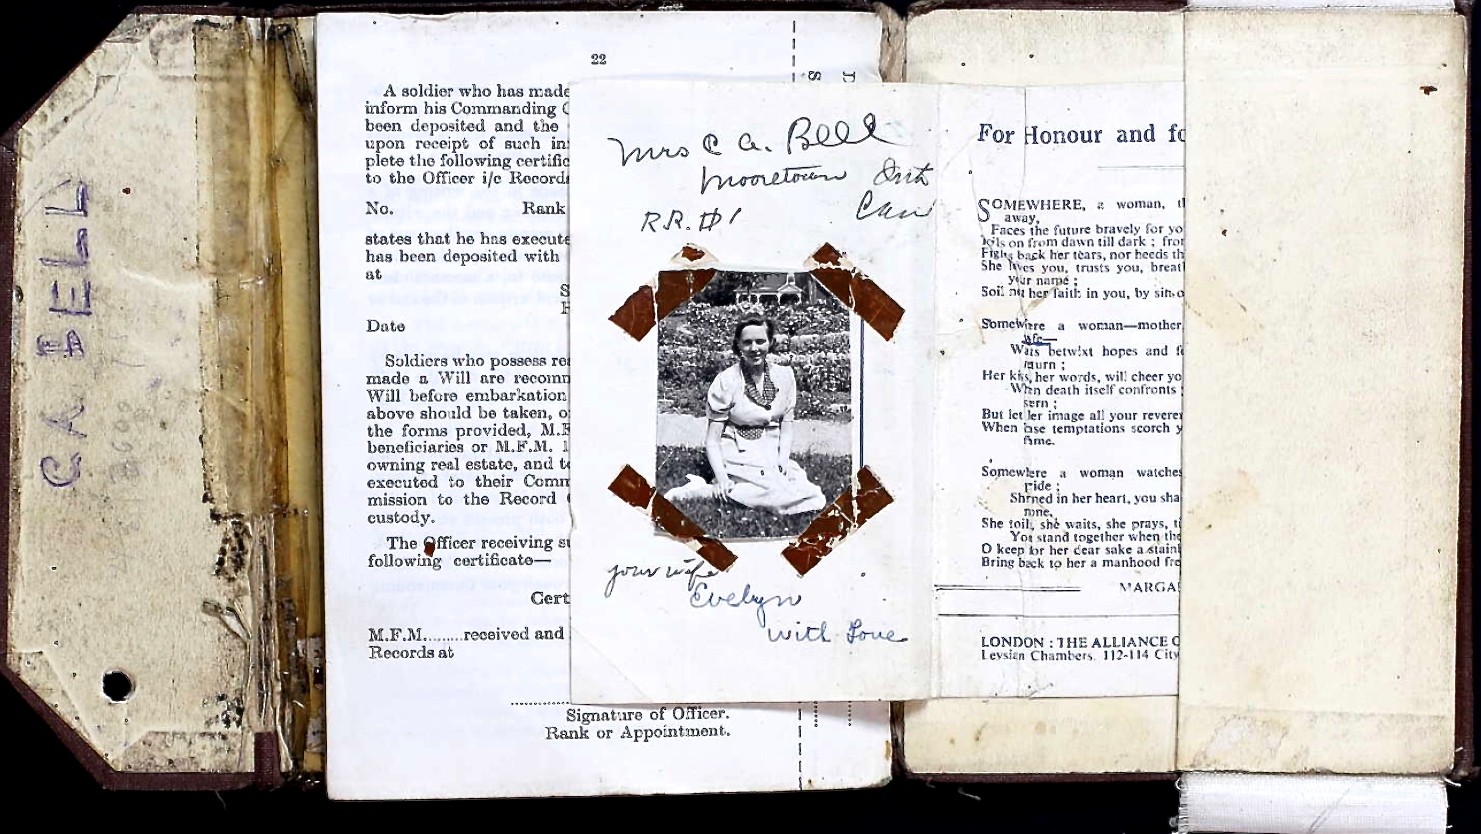 CA BELL
22
A soldier who has made
inform his Commanding
been deposited and the
upon receipt of such
plete the following
to the Officer i/c
No. Rank
states that he has
has been deposited with
at
Date
Soldiers who possess
made a Will are
Will before embarkation
above should be taken,
the forms provided,
beneficiaries or M.F.M.
owning real estate, and
executed to their
mission to the Record
custody.
The Officer receiving
following certificate—
M.F.M.........received and
Records at
Signature of Officer.
Rank or Appointment.
Mrs C A. Bell
Mooretown Ont
Can
R.R. #1
your wife
Evelyn
with Love
For Honour and
SOMEWHERE, a woman,
away,
Faces the future bravely for
on from dawn till dark ;
back her tears, nor heeds
She loves you, trusts you,
your name ;
her faith in you, by
Somewhere a woman—mother,
wife—
Waits betwixt hopes and
Her kiss, her words, will cheer
When death itself confronts
But let her image all your
When base temptations scorch
flame.
Somewhere a woman watches
pride ;
Shrined in her heart, you
She toils, she waits, she prays,
You stand together when
O keep for her dear sake a
Bring back to her a manhood
LONDON : THE ALLIANCE
Leysian Chambers, 112-114 City